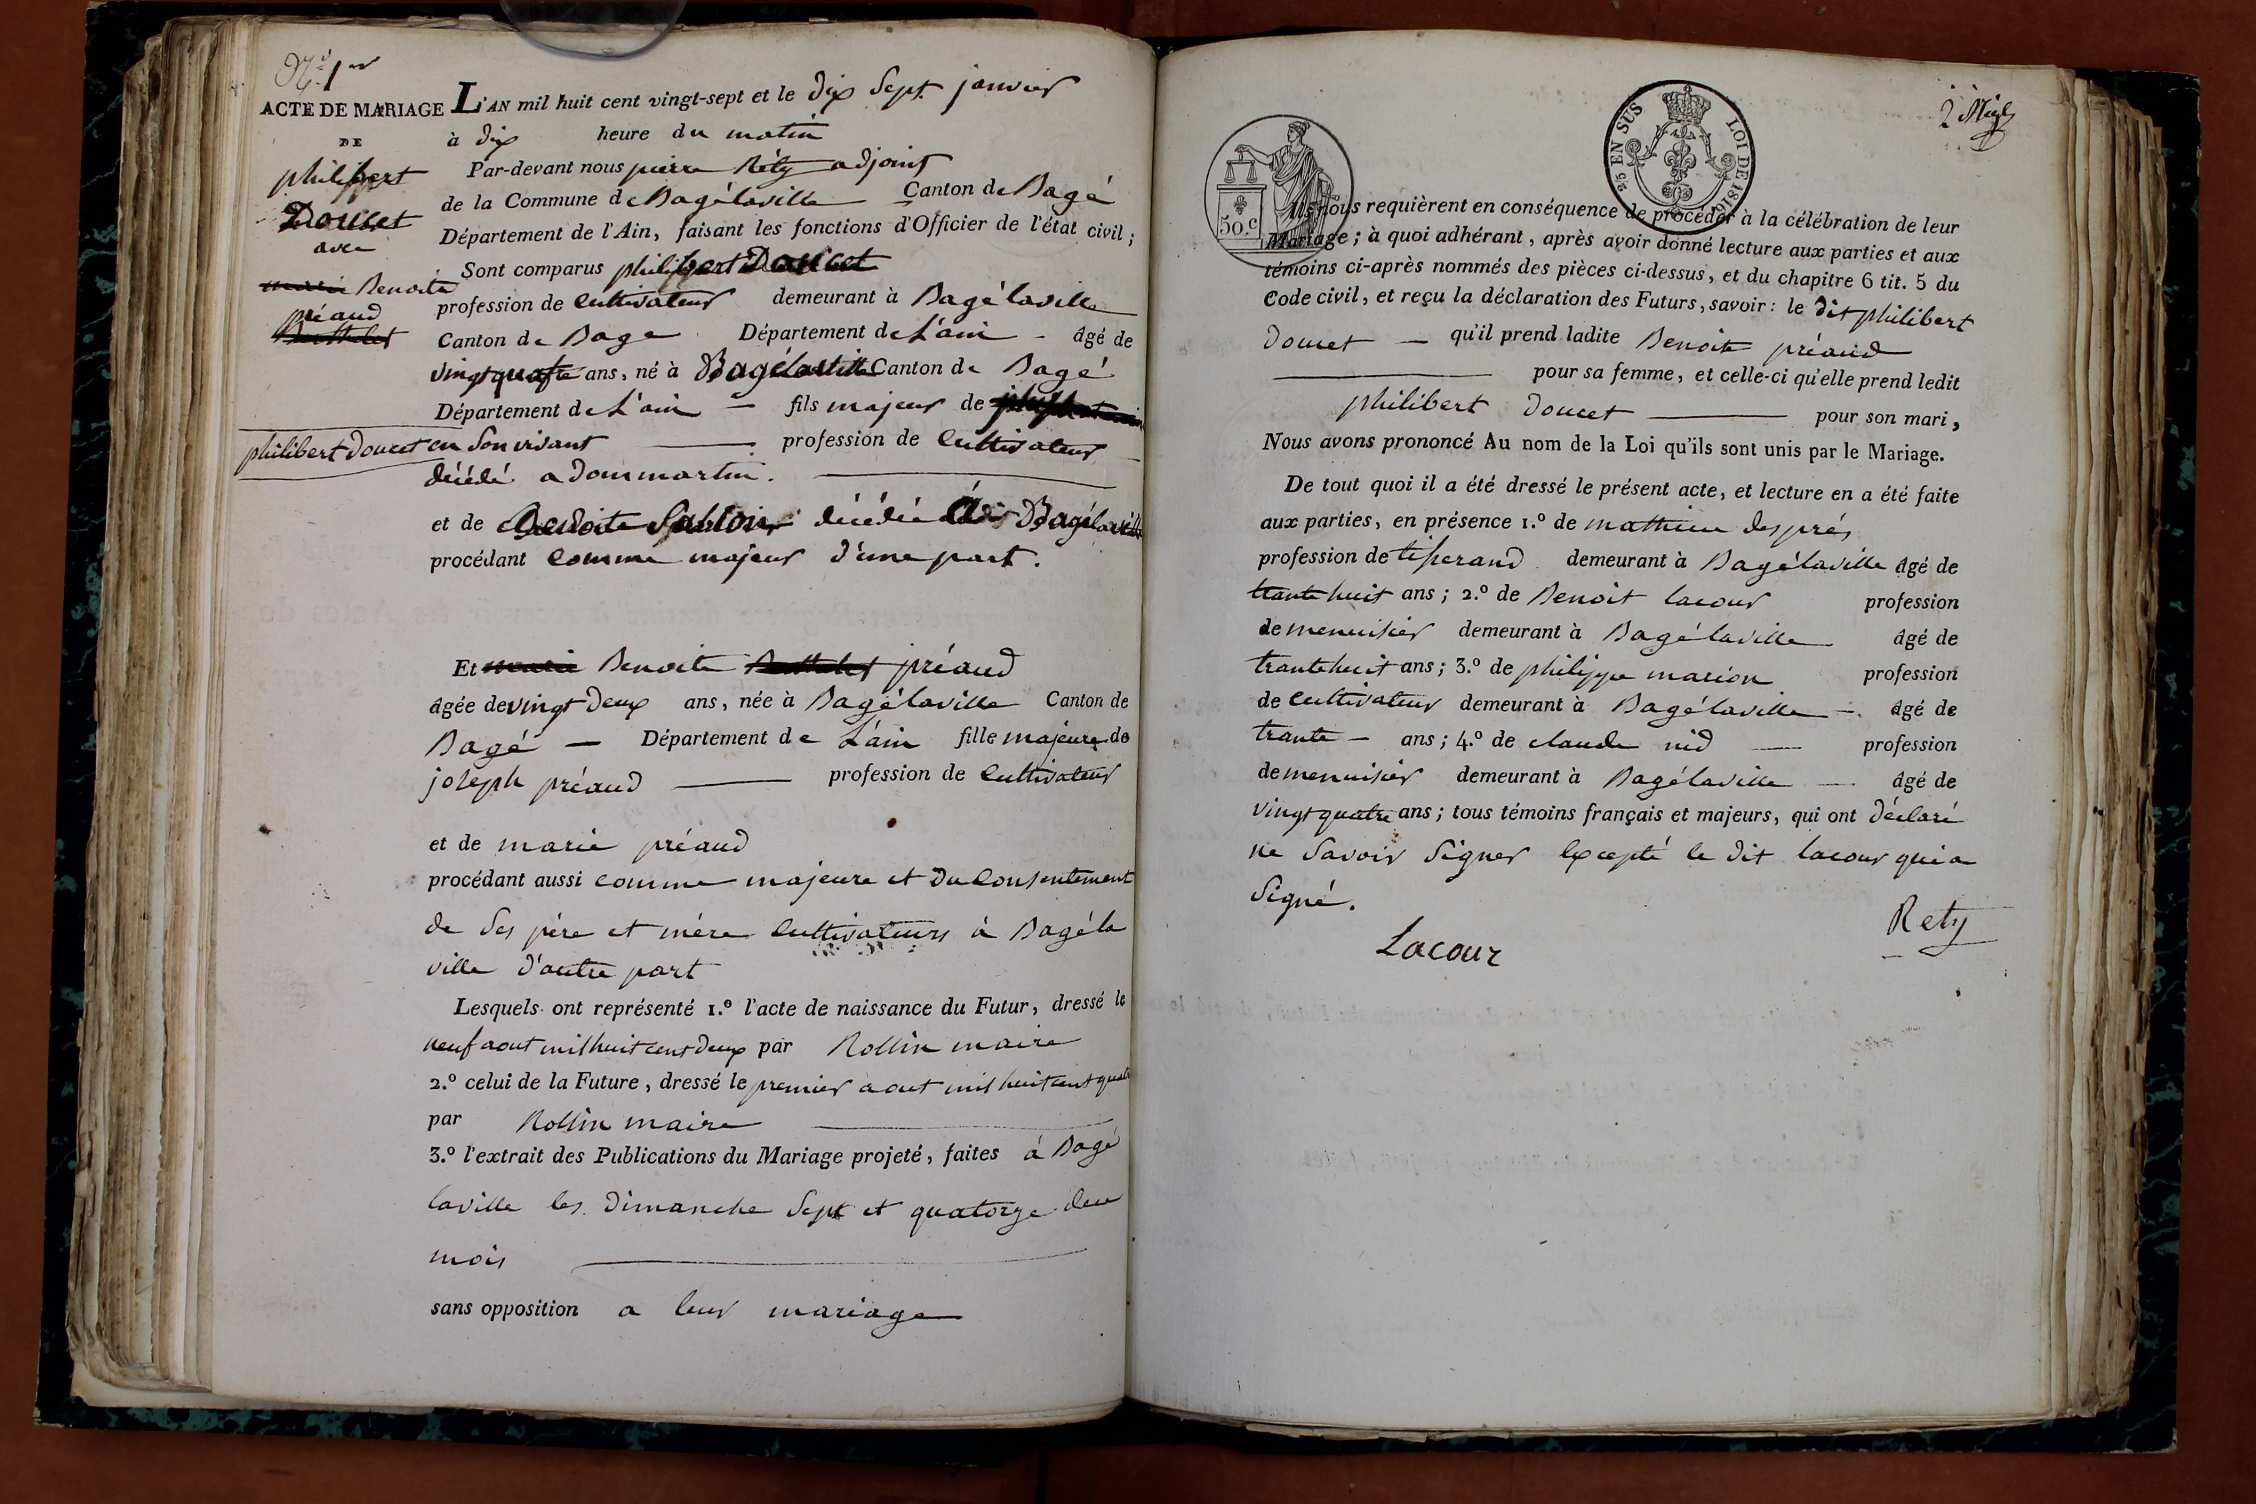 N.o 1er
ACTE DE MARIAGE
DE
philibert
Doucet
avec
marie Benoite
préaud
L'AN mil huit cent vingt-sept et le dix Sept janvier
à dix heure du matin
Par-devant nous pierre Réty adjoint
de la Commune de Bagélaville Canton de Bagé
Département de l'Ain, faisant les fonctions d'Officier de l'état civil;
Sont comparus philibert Doucet
profession de cultivateur demeurant à Bagélaville
Canton de Bage Département de L'ain âgé de
vingt quatre ans, né à Bagélaville Canton de Bagé
Département de L'ain fils majeur de
philibert Doucet en Son vivant profession de cultivateur
décédé a dommartin.
et de Benoite décédée à Bagélaville
procédant comme majeur d'une part.
Et marie Benoite préaud
âgée de vingt deux ans, née à Bagélaville Canton de
Bagé Département de L'ain fille majeure de
joseph préaud profession de cultivateur
et de marie préaud
procédant aussi comme majeure et du consentement
de Ses pére et mére cultivateurs à Bagéla
ville d'autre part
Lesquels ont représenté 1.º l'acte de naissance du Futur, dressé le
neuf aout mil huit cent deux par Rollin maire
2.º celui de la Future, dressé le premier aout mil huit cent quatre
par Rollin maire
3.º l'extrait des Publications du Mariage projeté, faites à Bagé
laville les dimanche Sept et quatorze du
mois
sans opposition a leur mariage
50.c
25 EN SUS LOI DE 1816
Ils nous requièrent en conséquence de procéder à la célébration de leur
Mariage; à quoi adhérant, après avoir donné lecture aux parties et aux
témoins ci-après nommés des pièces ci-dessus, et du chapitre 6 tit. 5 du
Code civil, et reçu la déclaration des Futurs, savoir: le dit philibert
Doucet qu'il prend ladite Benoite préaud
pour sa femme, et celle-ci qu'elle prend ledit
philibert doucet pour son mari,
Nous avons prononcé Au nom de la Loi qu'ils sont unis par le Mariage.
De tout quoi il a été dressé le présent acte, et lecture en a été faite
aux parties, en présence 1.º de mathieu després
profession de tisserand demeurant à Bagélaville âgé de
trante huit ans; 2.º de Benoit lacour profession
de menuisier demeurant à Bagélaville âgé de
trante huit ans; 3.º de philippe marion profession
de cultivateur demeurant à Bagélaville âgé de
trante ans; 4.º de claude nid profession
de menuisier demeurant à Bagélaville âgé de
vingt quatre ans; tous témoins français et majeurs, qui ont déclaré
ne Savoir Signer Excepté le dit lacour qui a
Signé.
Lacour
Rety